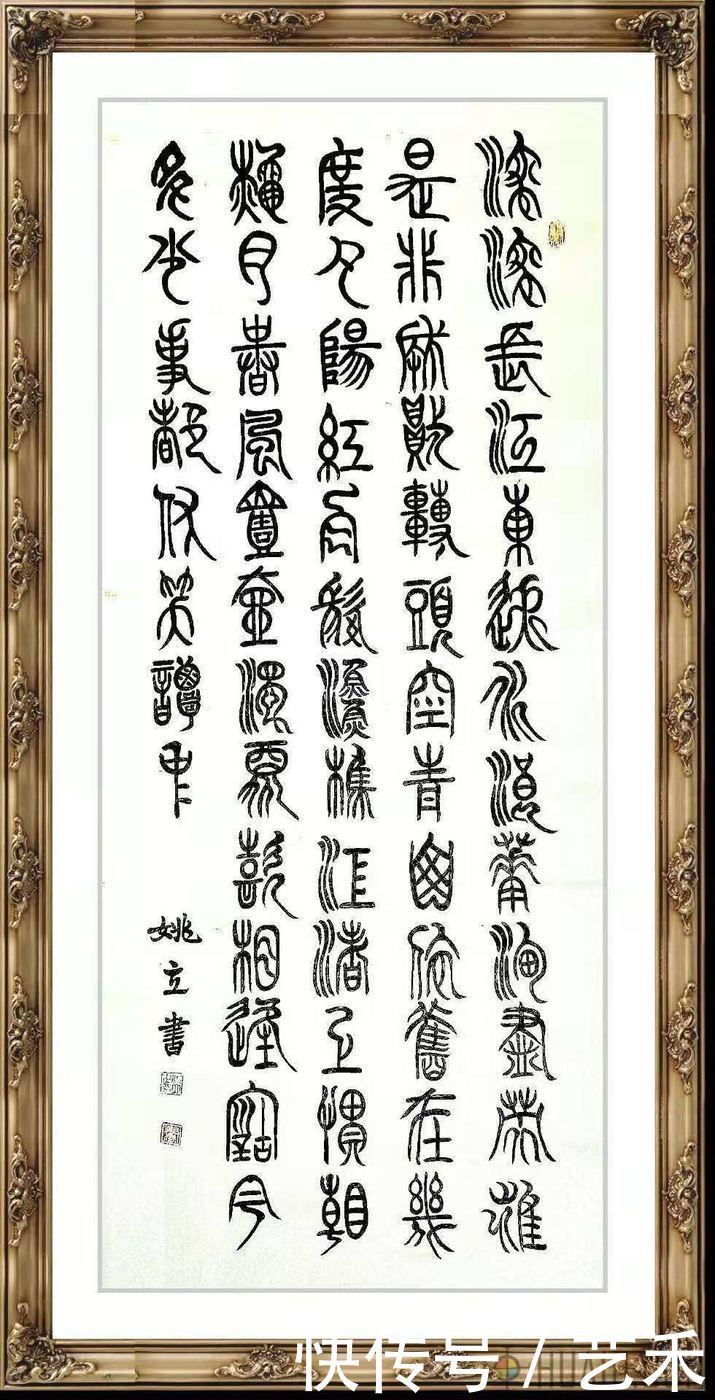 滾滾長江東逝水浪華淘盡英雄
是非成敗轉頭空青山依舊在幾
度夕陽紅白髮漁樵江渚上慣看
秋月春風壹壺濁酒喜相逢古今
多少事都付笑譚中
姚立書
快传号 / 艺禾